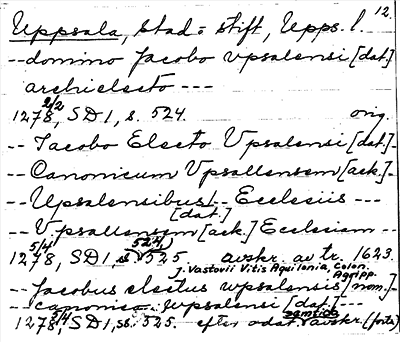 12.
Uppsala, stad o stift, Upps. l.
-- domino Jacobo vpsalensi [dat]
archielecto ---
1278 2/2, SD1, s. 524. orig.
-- Jacobo Electo Vpsalensi [dat.] -
-- Canonicum Vpsallensem [ack.] --
-- Upsalensibus -- Ecclesiis ---
[dat.]
-- Vpsallensem [ack.] Ecclesiam --
1278 5/4, SD1, s. (524) 525 avskr. av tr. 1623.
J. Vastovii Vitis Aquilonia, Colon. Agripp.
-- Jacobus electus wpsalensis [nom.] -
-- canonico wpsalensi [dat.] ---
1278 5/4, SD1, s. 525. efter odat. samtida avskr. (forts)